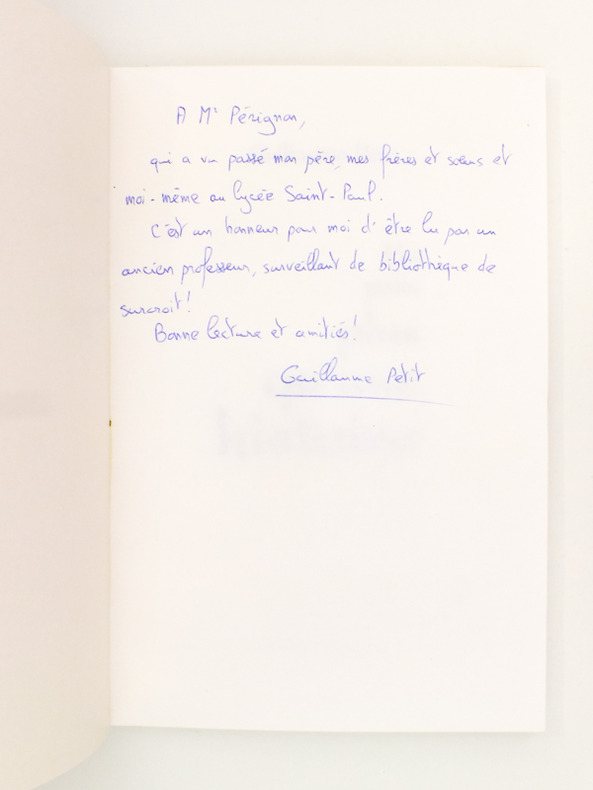 A Mr Pérignon,
qui a vu passé mon père, mes frères et sœurs et
moi-même au lycée Saint-Paul.
C'est un honneur pour moi d'être lu par un
ancien professeur, surveillant de bibliothèque de
surcroit !
Bonne lecture et amitiés !
Guillaume Petit